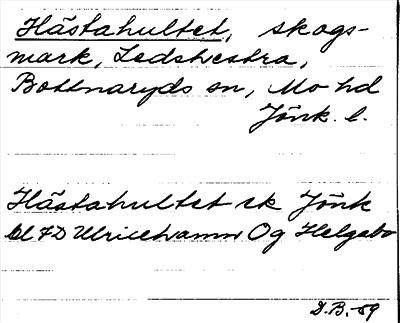 Hästahultet, skogs-
mark, Ledshestra,
Bottnaryds sn, Mo hd
Jönk. l.
Hästahultet ek Jönk
bl 7D Ulricehamn Og Helgabo
D.B. -59